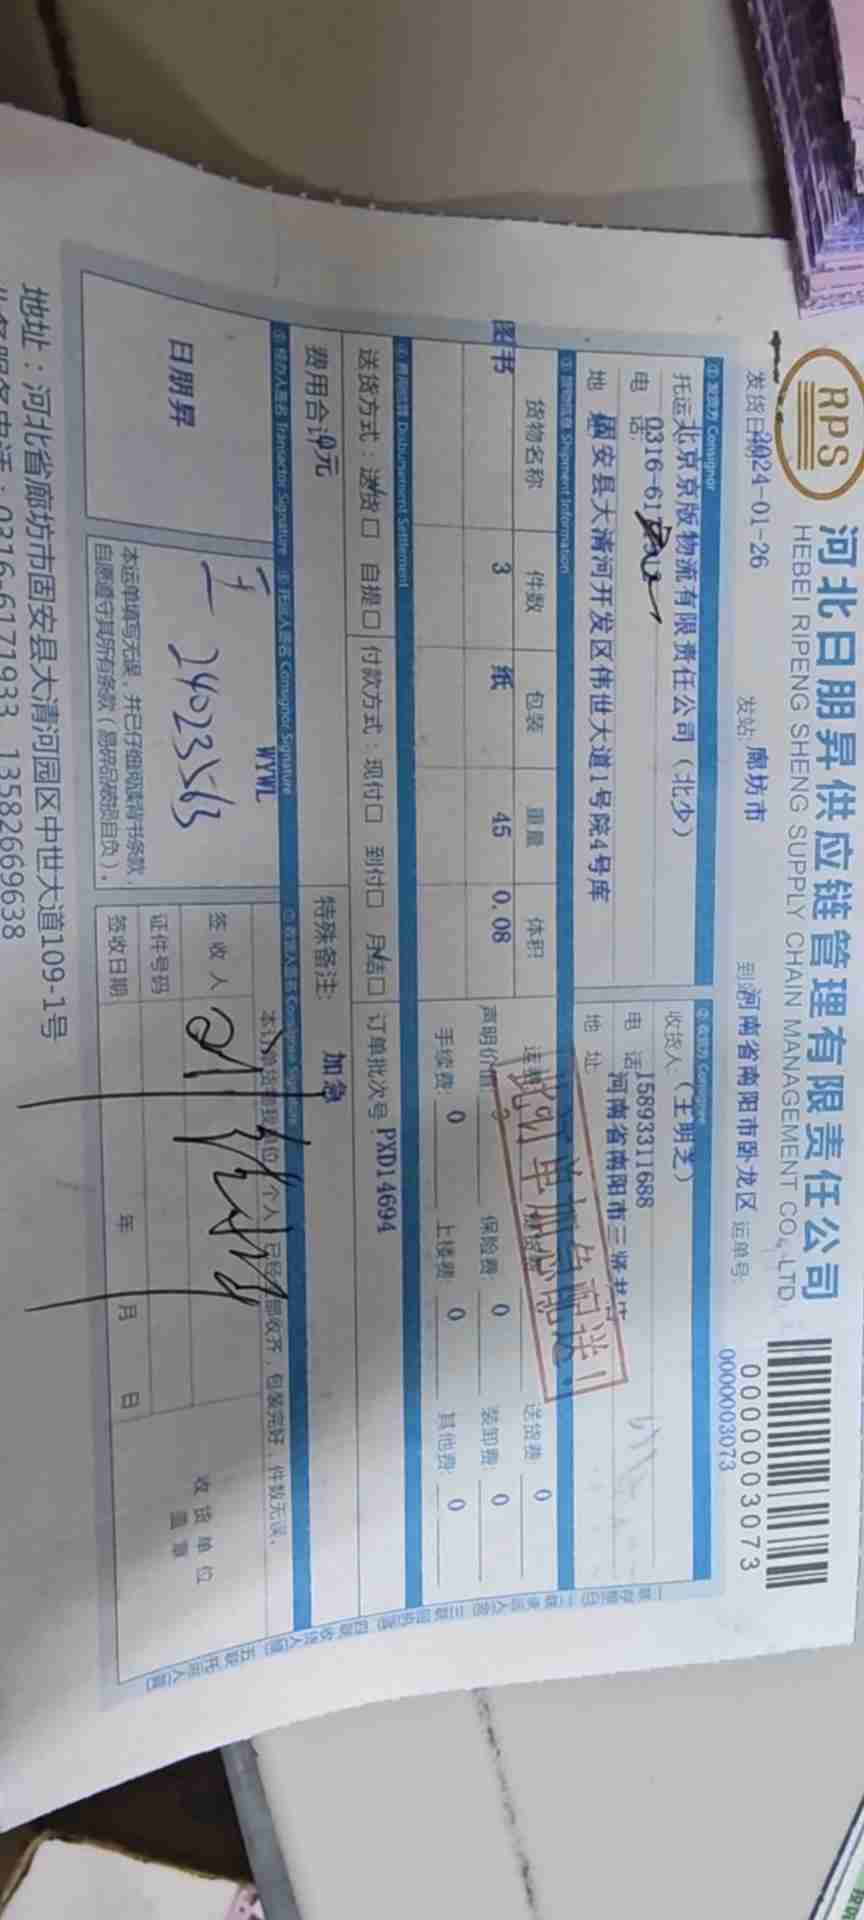 RPS
河北日朋昇供应链管理有限责任公司
HEBEI RIPENG SHENG SUPPLY CHAIN MANAGEMENT CO., LTD.
0000003073
发货日期 2024-01-26 发站: 廊坊市 到 河南省南阳市卧龙区 运单号: 0000003073
① 发货方 Consignor ② 收货方 Consignee
托运人 北京京版物流有限责任公司（北少） 收货人: （王明芝）
电 话: 0316-61 电 话: 15893311688
地 固安县大清河开发区伟世大道1号院4号库 地 址 河南省南阳市三
③ 货物信息 Shipment Information
货物名称 件数 包装 重量 体积 送货费 0
图书 3 纸 45 0.08 声明价值: 保险费: 0 装卸费: 0
手续费: 0 上楼费: 0 其他费: 0
此订单加急配送!
④ 费用结算 Disbursement Settlement
送货方式: 送货 自提 付款方式: 现付 到付 月结 订单批次号: PXD14694
费用合计 0元 特殊备注: 加急
⑤ 经办人签名 Transactor Signature ⑥ 托运人签名 Consignor Signature ⑦ 收货人签名 Consignee Signature
WYWL
日朋昇
24023563
本运单填写无误，并已仔细阅读背书条款，
自愿遵守其所有条款（易碎品破损自负）。
个人 已经 部收齐，包装完好，件数无误。
签 收 人
证件号码
签收日期: 年 月 日
收 货 单 位
盖 章
地址：河北省廊坊市固安县大清河园区中世大道109-1号
服务电话：0316-6171933 13582669638